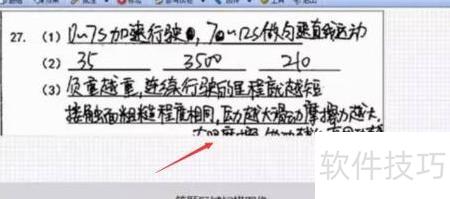 27. (1) 0~7s加速行驶, 7~12s做匀速直线运动
(2) 35 3500 210
(3) 负重越重,连续行驶的里程就越短
接触面粗糙程度相同,压力越大滑动摩擦力越大,
软件技巧